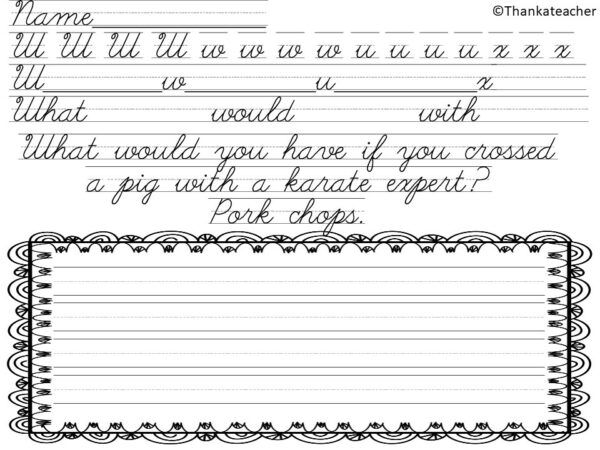 ©Thankateacher
Name
W W W W w w w w u u u u x x x
W w u x
What would with
What would you have if you crossed
a pig with a karate expert?
Pork chops.